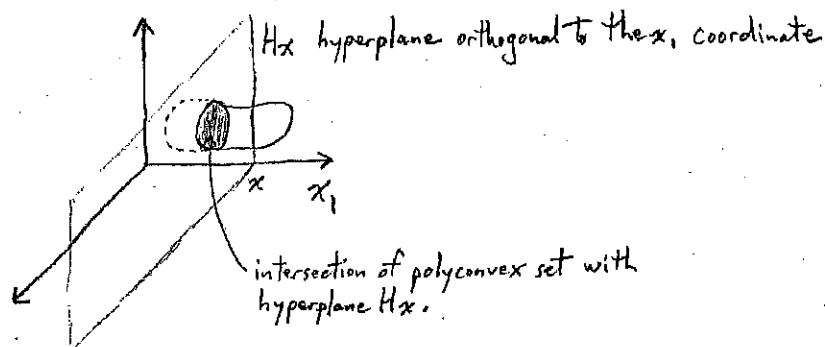 Hx hyperplane orthogonal to the x₁ coordinate
x
x₁
intersection of polyconvex set with
hyperplane Hx.